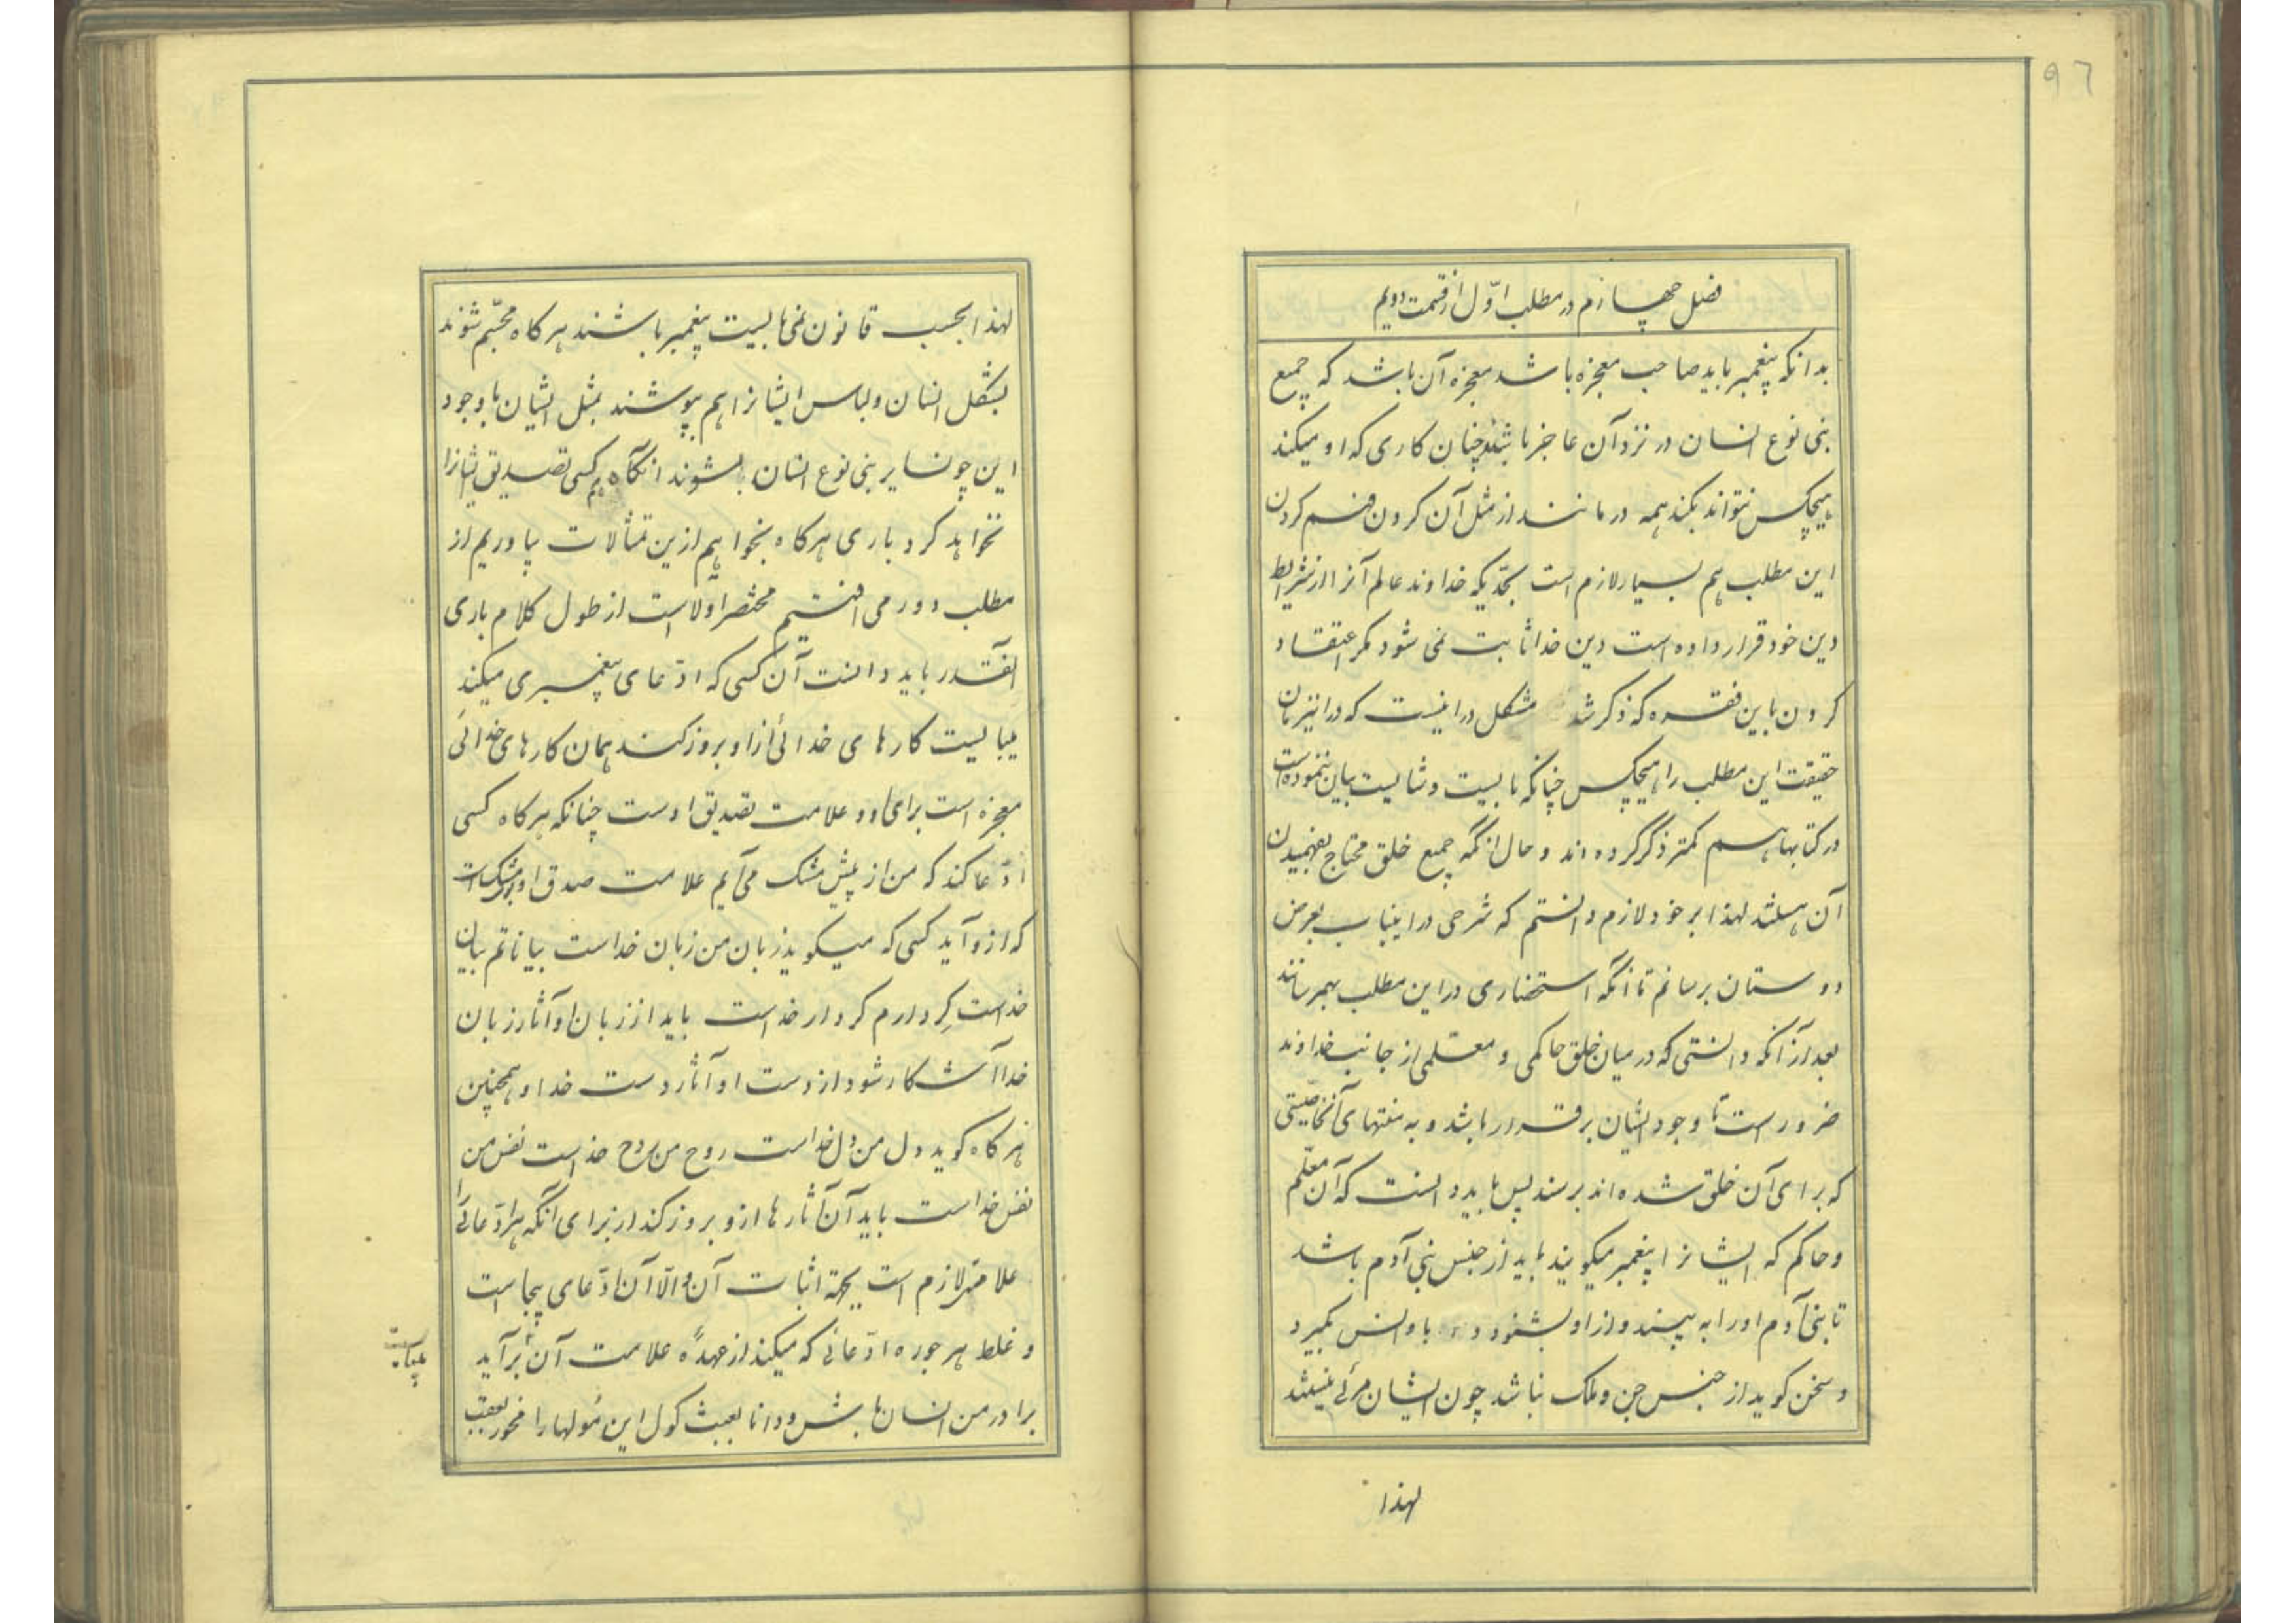 ٩٦
فصل چهارم در مطلب اوّل از قسمت دویم
بدانکه پیغمبر باید صاحب معجزه باشد معجزه آن باشد که جمیع
بنی نوع انسان در نزد آن عاجز باشند چنان کاری که او میکند
هیچکس نتواند بکند همه در مانند از مثل آن کردن فهم کردن
این مطلب هم بسیار لازم است بحدّیکه خداوند عالم آنرا از شرایط
دین خود قرار داده است دین خدا ثابت نمی شود مکر اعتقاد
کردن باین فقره که ذکر شد مشکل در اینست که در اینزمان
حقیقت این مطلب را هیچکس چنانکه بایست و شایست بیان ننموده است
در کتابها هم کمتر ذکر کرده اند و حال انکه جمیع خلق محتاج بفهمیدن
آن هستند لهذا بر خود لازم دانستم که شرحی در اینباب بعرض
دوستان برسانم تا آنکه استحضاری در این مطلب بهمرسانند
بعد از آنکه دانستی که در میان خلق حاکمی و معلمی از جانب خداوند
ضرور است تا وجود ایشان برقرار باشد و به منتهای آنخاصیتی
که برای آن خلق شده اند برسند پس باید دانست که آن معلّم
و حاکم که ایشانرا پیغمبر میکویند باید از جنس بنی آدم باشد
تا بنی آدم او را به بینند و از او بشنود و با او انس بکیرد
و سخن کوید از جنس جن و ملک نباشد چون ایشان مرئی نیستند
لهذا
لهذا بحسب قانون نمی بایست پیغمبر باشند هر کاه مجسّم شوند
بشکل انسان و لباس ایشانرا هم بپوشند بمثل ایشان با وجود
این چون سایر بنی نوع انسان بشوند انکاه هم کسی تصدیق ایشانرا
نخواهد کرد باری هر کاه بخواهیم ازین تمثالات بیاوریم از
مطلب دور می افتیم مختصر اولاست از طول کلام باری
اینقدر باید دانست آن کسی که ادّعای پیغمبری میکند
میبایست کارهای خدائی از او بروز کند همان کارهای خدائی
معجزه است برای او و علامت تصدیق اوست چنانکه هر کاه کسی
ادّعا کند که من از پیش مشک می آیم علامت صدق او بوی مشک است
که از و آید کسی که میکوید زبان من زبان خداست بیاناتم بیان
خداست کردارم کردار خداست باید از زبان او آثار زبان
خدا آشکار شود از دست او آثار دست خدا و همچنین
هر کاه کوید دل من دل خداست روح من روح خداست نفس من
نفس خداست باید آن آثارها ازو بروز کند از برای آنکه هر ادّعائی را
علامتی لازم است بجهة اثبات آن و الّا آن ادّعای بیجاست
و غلط هر جوره ادّعائی که میکند از عهدهٔ علامت آن برآید
برادر من انسان باش و دانا بعبث کول این غولها را مخور بعقب